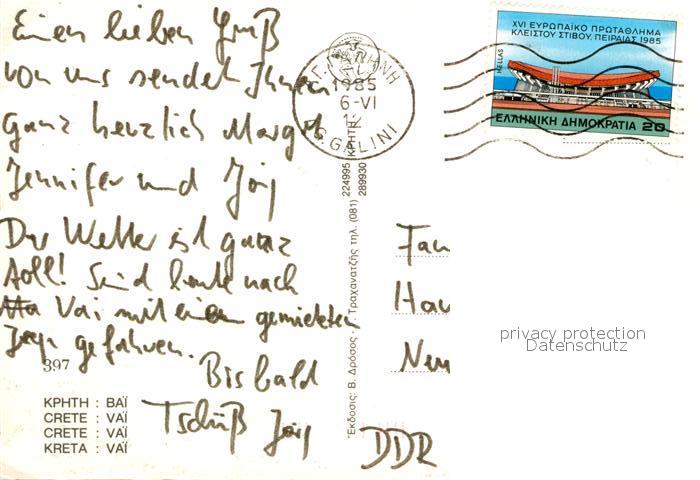 Einen lieben Gruß
von uns sendet Ihnen
ganz herzlich Margit
Jennifer und Jörg
Das Wetter ist ganz
toll! Sind heute nach
Vai mit einem gemieteten
Jeep gefahren.
Bis bald
Tschüß Jörg
397
ΚΡΗΤΗ : ΒΑΪ
CRETE : VAÏ
CRETE : VAÏ
KRETA : VAÏ
1985
6-VI
AG. GALINI
ΚΡΗΤΗ
224995
289930
Ἔκδοσις: Β. Δρόσος - Γ. Τραχανατζῆς τηλ. (081)
XVI ΕΥΡΩΠΑΪΚΟ ΠΡΩΤΑΘΛΗΜΑ
ΚΛΕΙΣΤΟΥ ΣΤΙΒΟΥ. ΠΕΙΡΑΙΑΣ 1985
HELLAS
ΕΛΛΗΝΙΚΗ ΔΗΜΟΚΡΑΤΙΑ 20
Fam
Hau
Neu
DDR
privacy protection
Datenschutz